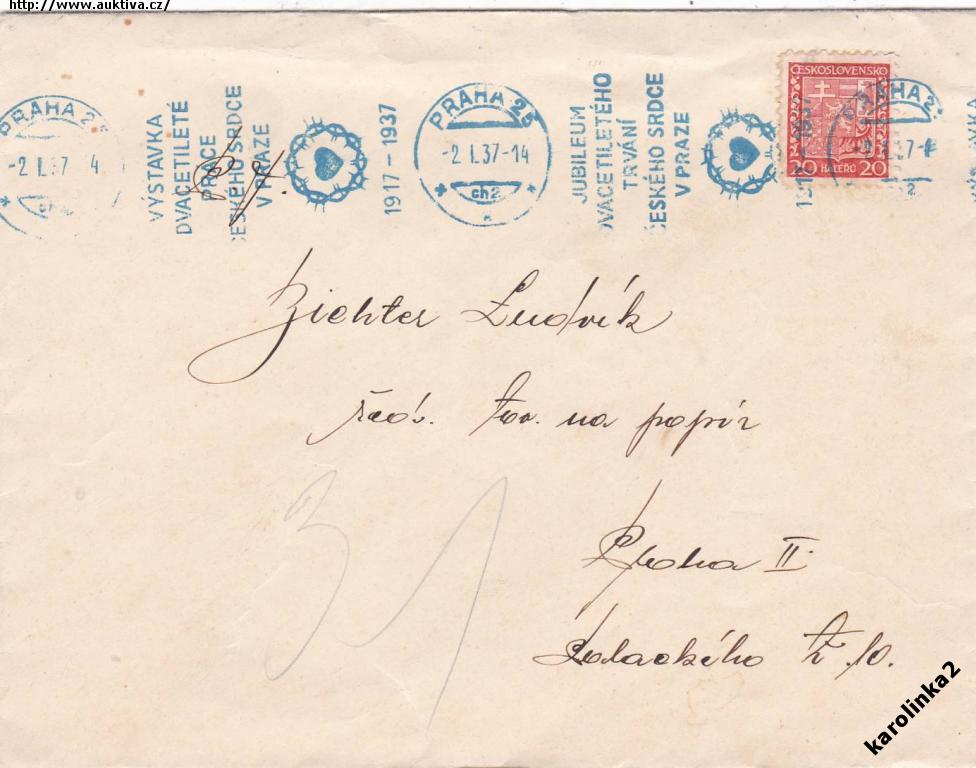 http://www.auktiva.cz/
PRAHA 25
-2 I.37 4
VÝSTAVKA
DVACETILETÉ
PRÁCE
ČESKÉHO SRDCE
V PRAZE
1917-1937
PRAHA 25
-2 I.37-14
ch2
JUBILEUM
DVACETILETÉHO
TRVÁNÍ
ČESKÉHO SRDCE
V PRAZE
ČESKOSLOVENSKO
20 HALÉŘŮ 20
Ludvík
tov. na papír
Praha II.
31
karolinka2